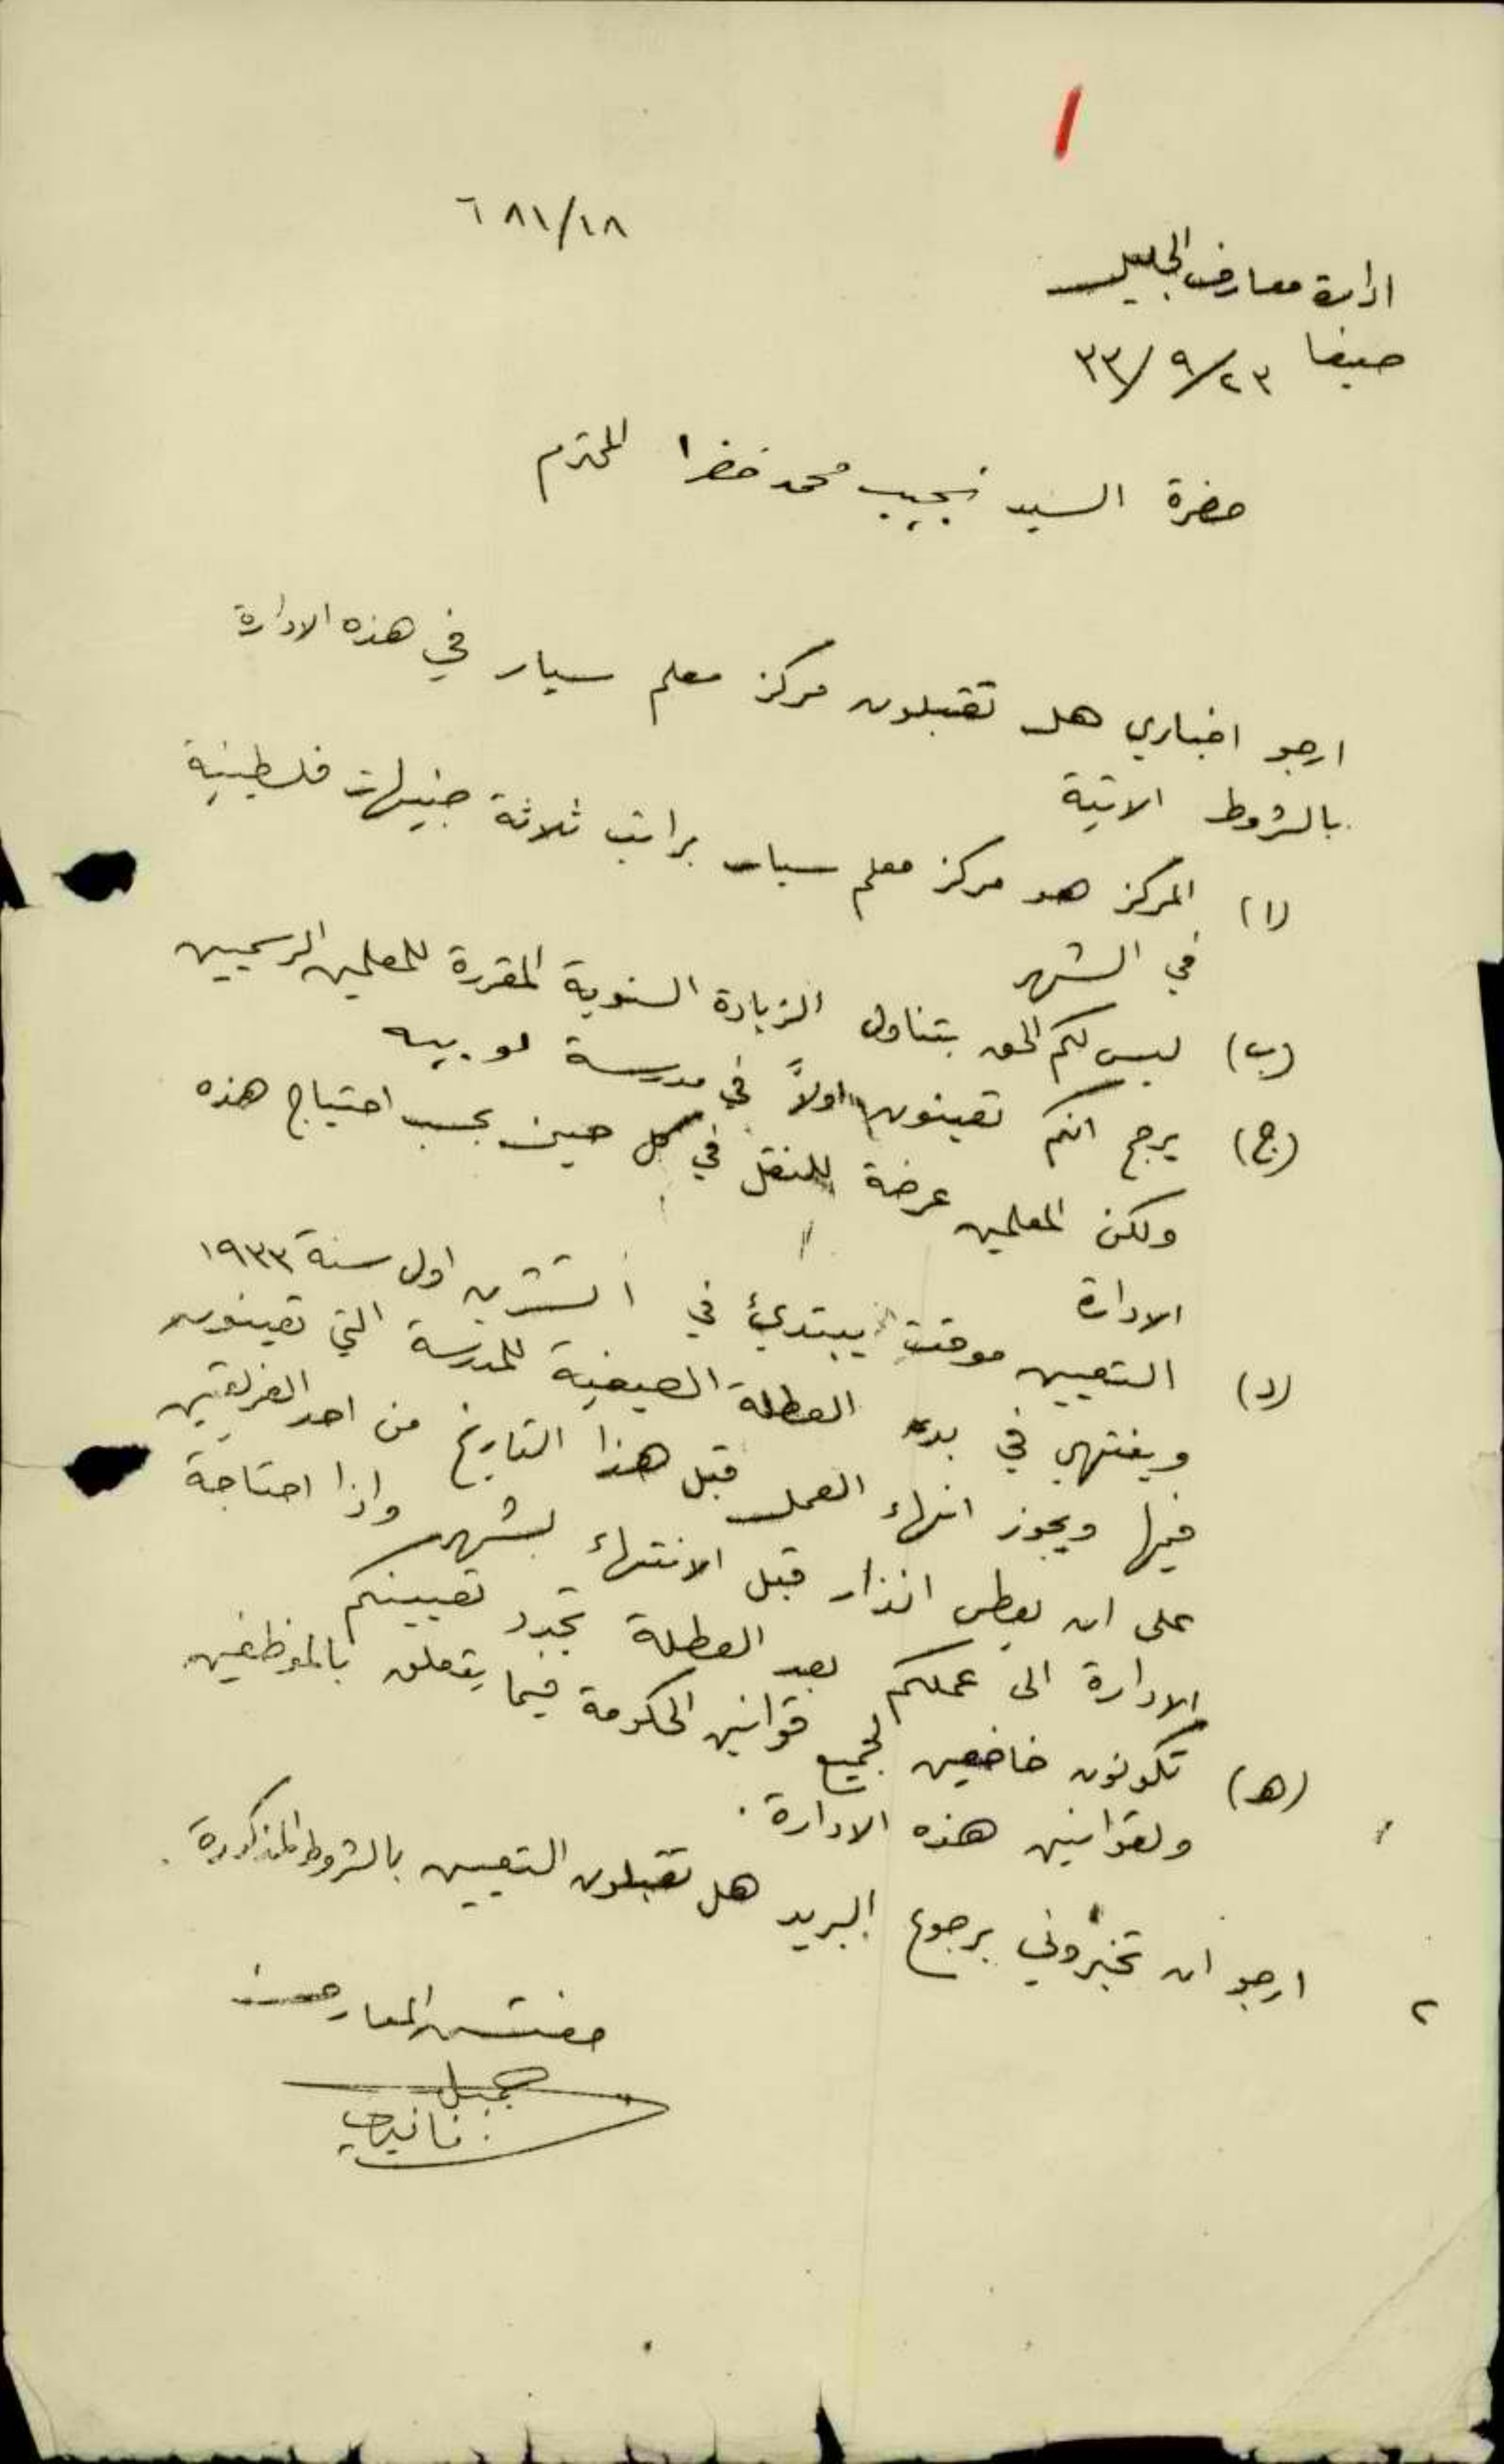 ١
٦٨١/١٨
ادارة معارف الجليل
حيفا ٢٣/٩/٣٣
حضرة السيد نجيب محمد خضرا المحترم
ارجو اخباري هل تقبلون مركز معلم سيار في هذه الادارة
بالشروط الاتية
(ا) المركز هو مركز معلم سيار براتب ثلاثة جنيهات فلسطينية
في الشهر
(ب) ليس لكم الحق بتناول الزيادة السنوية المقررة للمعلمين الرسميين
(ج) يرجح انكم تعينون اولاً في مدرسة لوبيه
ولكن المعلمين عرضة للنقل في كل حين بحسب احتياج هذه
الادارة
(د) التعيين موقت يبتدئ في ١ تشرين اول سنة ١٩٣٣
وينتهي في بدء العطلة الصيفية للمدرسة التي تعينون
فيها ويجوز انهاء العمل قبل هذا التاريخ من احد الفريقين
على ان يعطى انذار قبل الانتهاء بشهر واذا احتاجة
الادارة الى عملكم بعد العطلة تجدد تعيينكم
(ه) تكونون خاضعين لجميع قوانين الحكومة فيما يتعلق بالموظفين
ولقوانين هذه الادارة.
٢ ارجو ان تخبروني برجوع البريد هل تقبلون التعيين بالشروط المذكورة.
مفتش المعارف
جميل